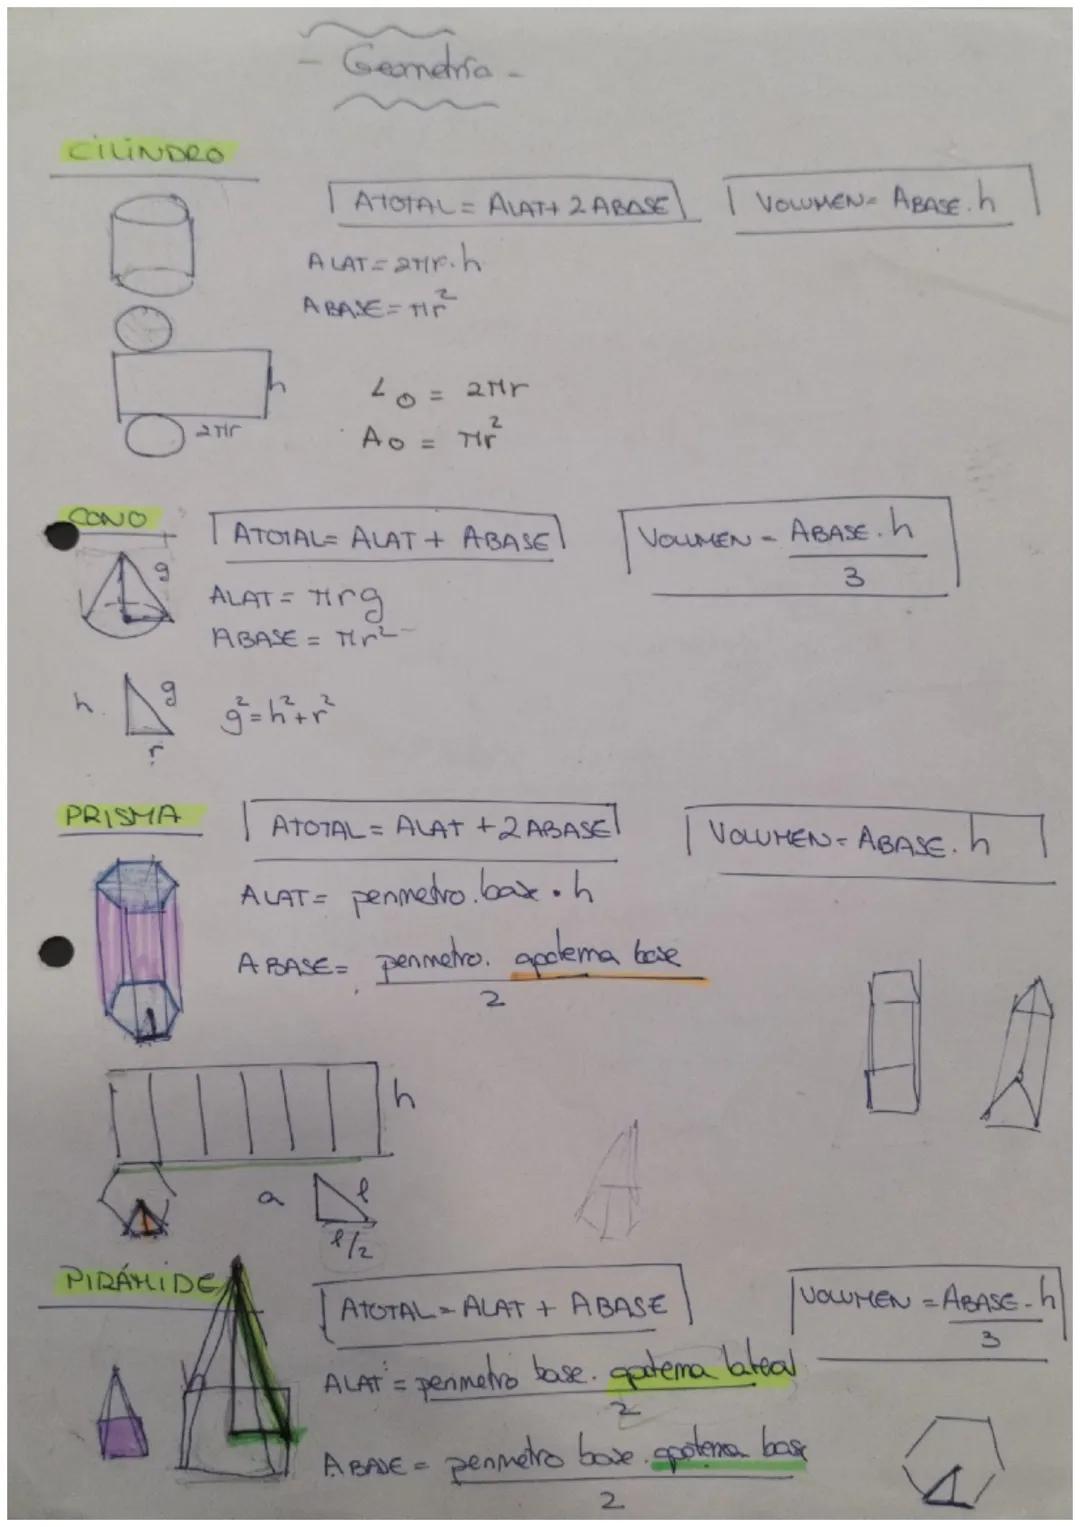 - Geometría -
CILINDRO
ATOTAL = ALAT + 2 ABASE
VOLUMEN = ABASE . h
ALAT = 2πr . h
ABASE = πr²
h
2πr
L○ = 2πr
A○ = πr²
CONO
ATOTAL = ALAT + ABASE
VOLUMEN = ABASE . h / 3
g
ALAT = πrg
ABASE = πr²
h g
r
g² = h² + r²
PRISMA
ATOTAL = ALAT + 2 ABASE
VOLUMEN = ABASE . h
ALAT = perímetro . base . h
ABASE = perímetro . apotema base / 2
h
a l
l/2
PIRÁMIDE
ATOTAL = ALAT + ABASE
VOLUMEN = ABASE . h / 3
ALAT = perímetro base . apotema lateral / 2
ABASE = perímetro base . apotema base / 2